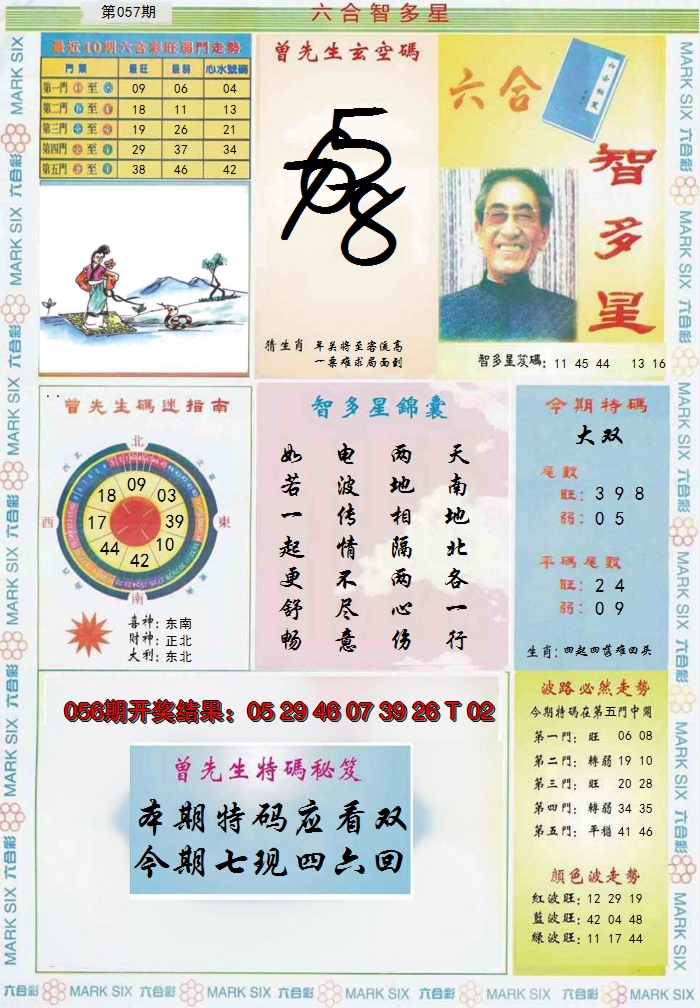 第057期
六合智多星
最近10期六合彩旺弱門走勢
門類 最旺 最弱 心水號碼
第一門 至 09 06 04
第二門 至 18 11 13
第三門 至 19 26 21
第四門 至 29 37 34
第五門 至 38 46 42
曾先生玄空碼
猜生肖 年关将至客流高
一票难求局面到
六合
智多星
智多星笈碼: 11 45 44 13 16
曾先生碼迷指南
北
西 東
南
09
18 03
17 39
44 10
42
喜神: 东南
財神: 正北
大利: 东北
智多星錦囊
天南地北各一行
两地相隔两心伤
电波传情不尽意
如若一起更舒畅
今期特碼
大双
尾數
旺: 3 9 8
弱: 0 5
平碼尾數
旺: 2 4
弱: 0 9
生肖: 四起四落难回头
056期开奖结果: 05 29 46 07 39 26 T 02
曾先生特碼秘笈
本期特码应看双
今期七现四六回
波路必然走势
今期特碼在第五門中開
第一門: 旺 06 08
第二門: 轉弱 19 10
第三門: 旺 20 28
第四門: 轉弱 34 35
第五門: 平穩 41 46
顔色波走勢
紅波旺: 12 29 19
藍波旺: 42 04 48
綠波旺: 11 17 44
六合彩 MARK SIX 六合彩 MARK SIX 六合彩 MARK SIX 六合彩 MARK SIX 六合彩 MARK SIX